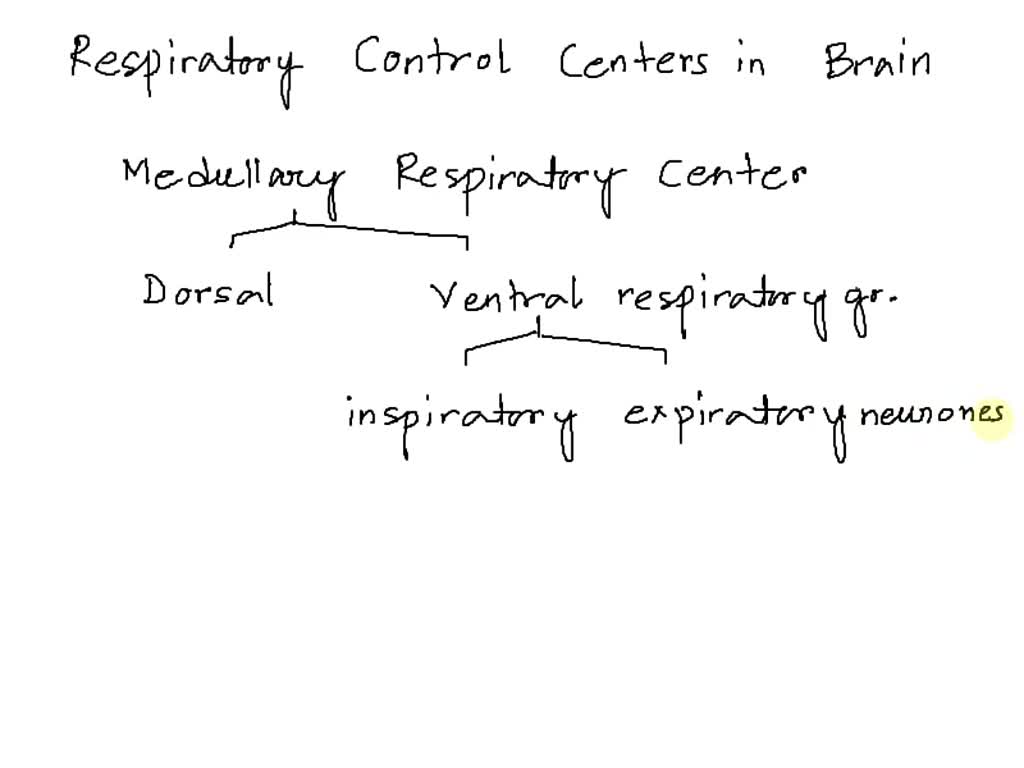 Respiratory Control Centers in Brain
Medullary Respiratory Center
Dorsal Ventral respiratory gr.
inspiratory expiratory neurones